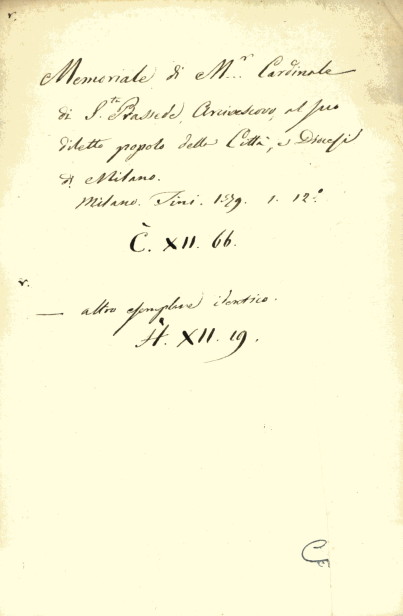 v.
Memoriale di M.r Cardinale
di S.ta Prassede, Arcivescovo, al suo
diletto popolo della Città, e Diocesi
di Milano.
Milano. Tini. 1579. 1. 12.º
C. XII. 66.
v.
— altro esemplare identico.
H. XII. 19.
C